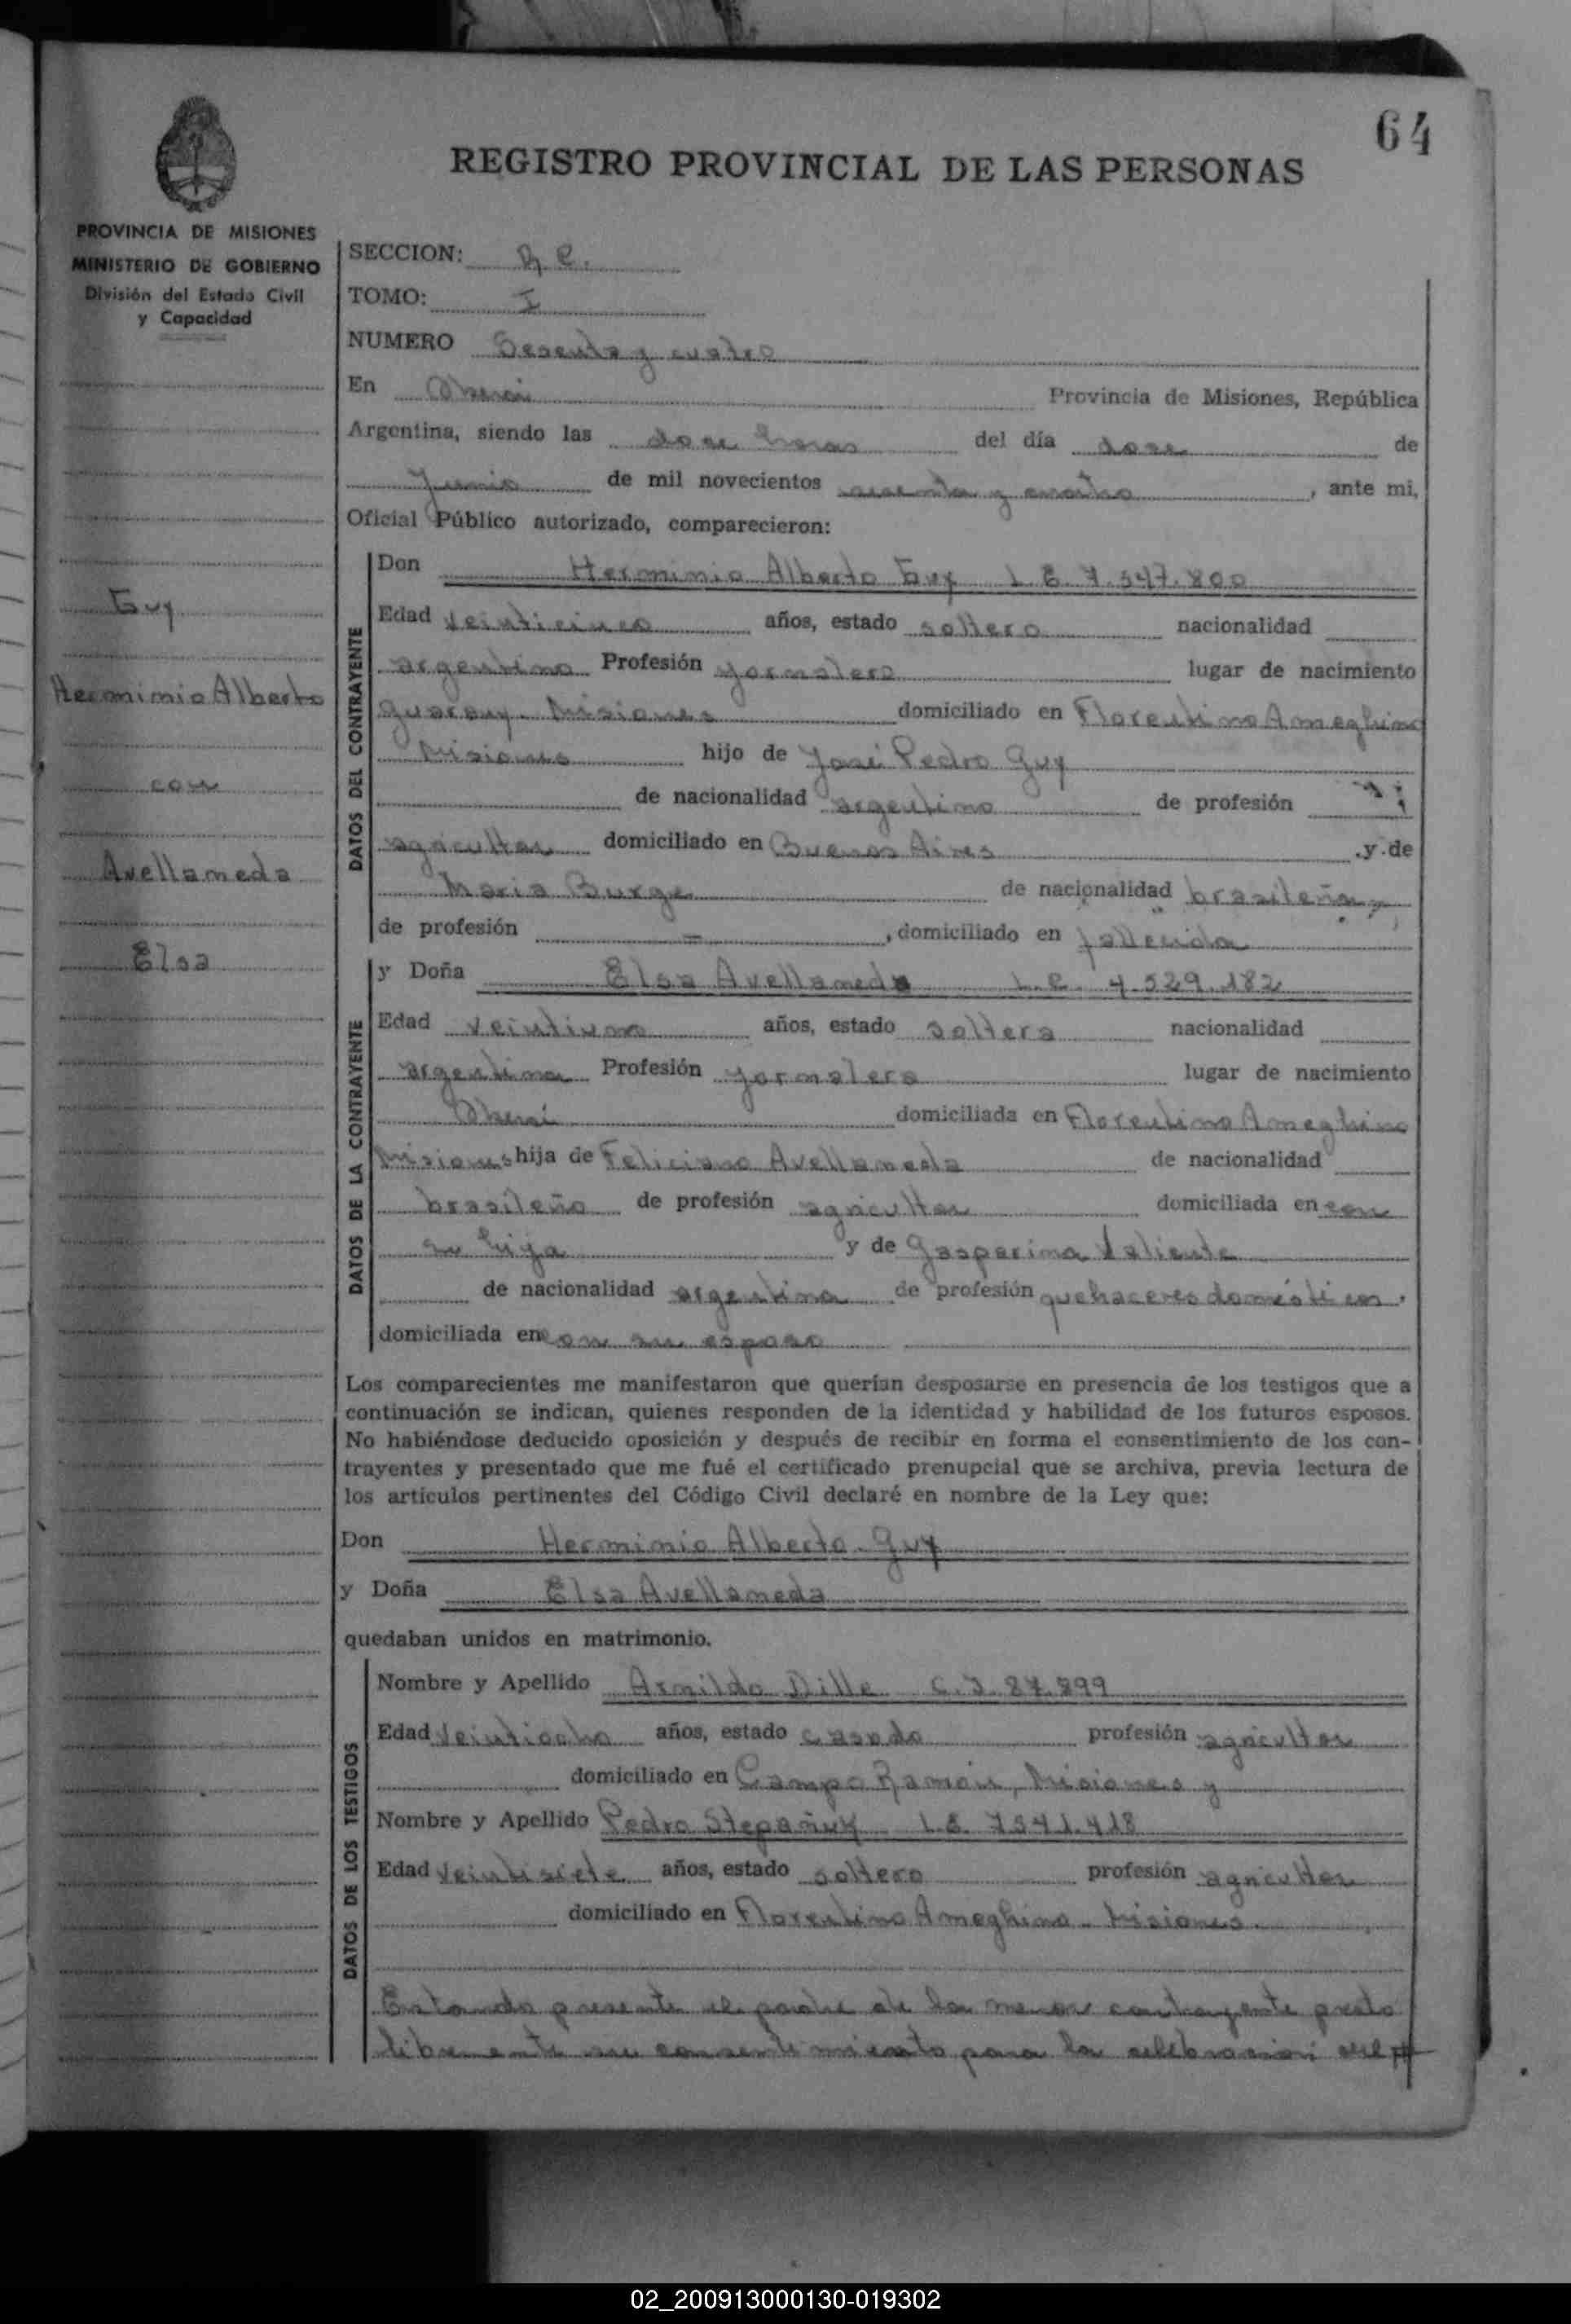 64
REGISTRO PROVINCIAL DE LAS PERSONAS
PROVINCIA DE MISIONES
MINISTERIO DE GOBIERNO
División del Estado Civil
y Capacidad
SECCION: R C.
TOMO: I
NUMERO Sesenta y cuatro
En Oberá Provincia de Misiones, República
Argentina, siendo las doce horas del día doce de
Junio de mil novecientos sesenta y cuatro, ante mi,
Oficial Público autorizado, comparecieron:
Guy
Herminio Alberto
con
Avellameda
Elsa
DATOS DEL CONTRAYENTE
Don Herminio Alberto Guy L.E. 7.547.800
Edad veinticinco años, estado soltero nacionalidad
argentino Profesión jornalero lugar de nacimiento
Guarany - Misiones domiciliado en Florentino Ameghino
Misiones hijo de José Pedro Guy
de nacionalidad argentino de profesión
agricultor domiciliado en Buenos Aires .y.de
Maria Burge de nacionalidad brasileña
de profesión —, domiciliado en fallecida
DATOS DE LA CONTRAYENTE
y Doña Elsa Avellameda L.C. 4.529.182
Edad veintiuno años, estado soltera nacionalidad
argentina Profesión jornalera lugar de nacimiento
Oberá domiciliada en Florentino Ameghino
Misiones hija de Feliciano Avellameda de nacionalidad
brasileño de profesión agricultor domiciliada en con
su hija y de Gasparina Valiente
de nacionalidad argentina de profesión quehaceres domésticos.
domiciliada en con su esposo
Los comparecientes me manifestaron que querían desposarse en presencia de los testigos que a
continuación se indican, quienes responden de la identidad y habilidad de los futuros esposos.
No habiéndose deducido oposición y después de recibir en forma el consentimiento de los con-
trayentes y presentado que me fué el certificado prenupcial que se archiva, previa lectura de
los artículos pertinentes del Código Civil declaré en nombre de la Ley que:
Don Herminio Alberto Guy
y Doña Elsa Avellameda
quedaban unidos en matrimonio.
DATOS DE LOS TESTIGOS
Nombre y Apellido Arnildo Dille C.I. 87.899
Edad veintiocho años, estado casado profesión agricultor
domiciliado en Campo Ramón, Misiones y
Nombre y Apellido Pedro Stepañuk L.E. 7541.418
Edad veintisiete años, estado soltero profesión agricultor
domiciliado en Florentino Ameghino - Misiones.
Estando presente el padre de la menor contrayente presto
libremente su consentimiento para la celebración del
02_200913000130-019302